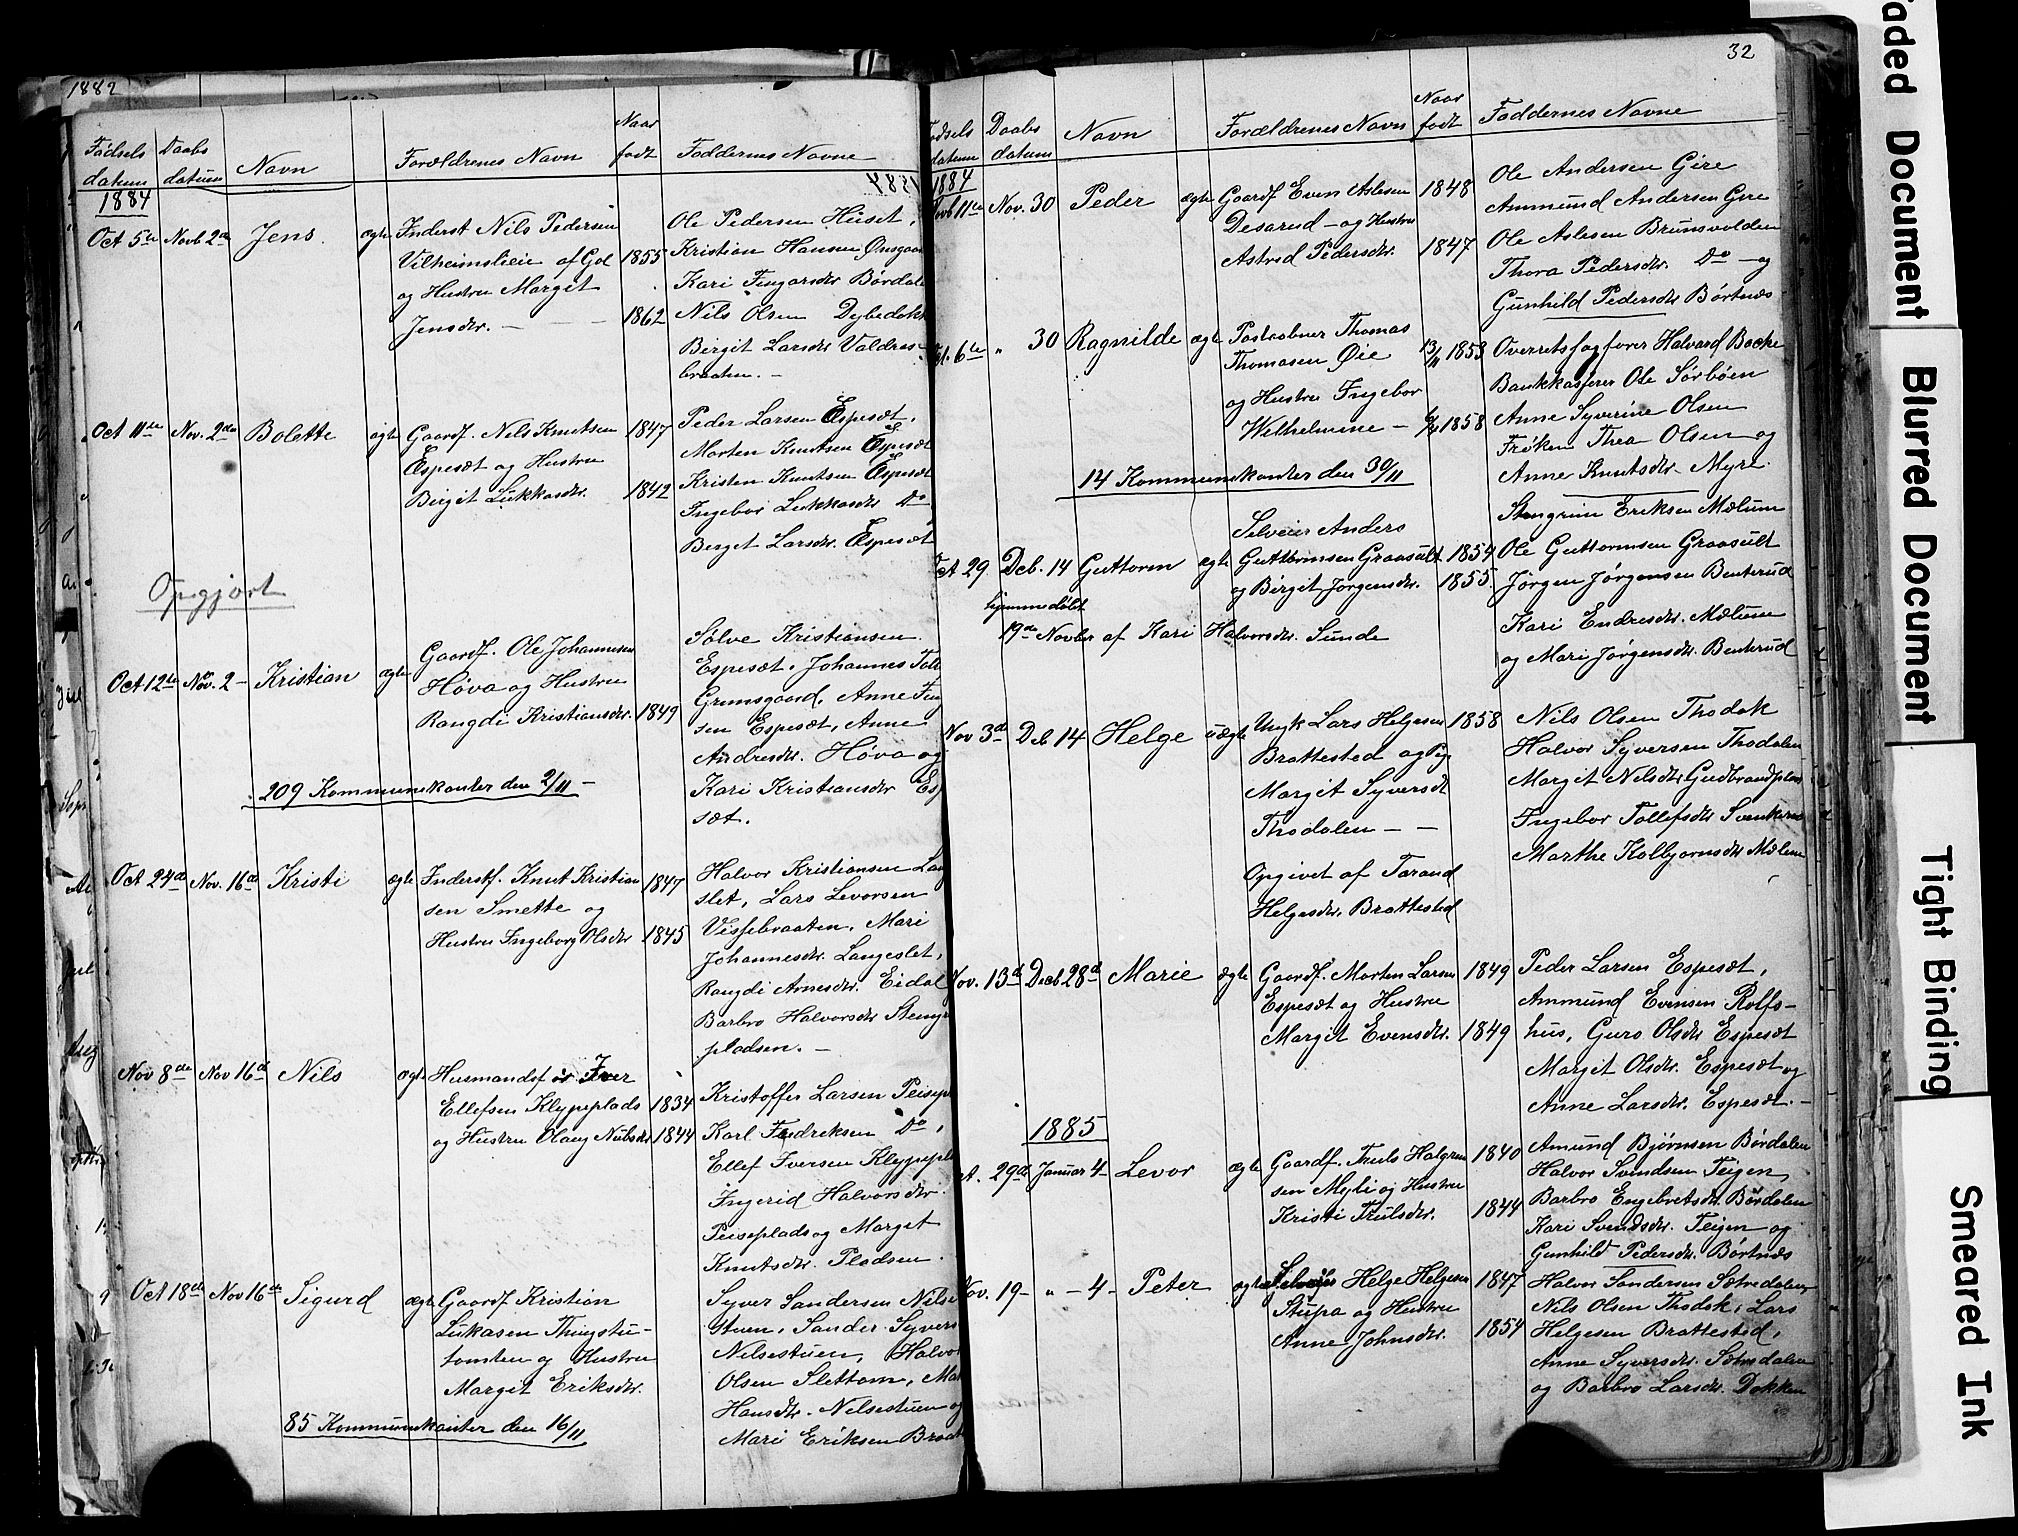 1882
Fødsels datum
Daabs datum
Navn
Forældrenes Navn
Naar født
Faddernes Navne
1884
Oct 5te Novb 2den Jens ægte Inderst Nils Pedersen
Vilheimsleie af Gol 1855
og Hustru Margit
Jensdtr. — 1862
Ole Pedersen Huset,
Kristian Hansen
Kari Fingarsdtr Børdale
Nils Olsen Dybedokk
Birgit Larsdtr Valdres-
braaten. —
Oct 11te Nov. 2den Bolette ægte Gaardf. Nels Knutsen 1847
Espesæt og Hustru
Birgit Lukkasdtr. 1842
Peder Larsen Espesæt,
Morten Knutsen Espesæt
Kristen Knutsen Espesæt
Ingebor Lukkasdtr Do
Berget Larsdtr. Espesæt
Opgjort
Oct 12te Nov. 2 — Kristian ægte Gaardf. Ole Johannesen
Høva og Hustru
Rangdi Kristiansdtr. 1849
Sølve Kristiansen
Espesæt. Johannes
Grimsgaard, Anne
sen Espesæt, Anne
Andresdtr. Høva og
Kari Kristiansdtr Es
sæt.
209 Kommunikanter den 2/11 —
Oct 24de Nov. 16de Kristi ægte Inderstf. Knut Kristian 1847
sen Smette og
Hustru Ingeborg Olsdtr 1845
Halvor Kristiansen Lan
slet, Lars Levorsen
Vissebraaten, Mari
Johannesdtr. Langeslet,
Rangdi Arnesdtr. Eidal
Barbro Halvorsdtr
pladsen. —
Nov 8de Nov 16de Nils ægte Husmandsf Iver
Ellefsen Klypeplads 1834
og Hustru Olaug Nilsdtr 1844
Kristoffer Larsen Peisep
Karl Fredriksen Do,
Ellef Iversen Klypepl
Ingerid Halvorsdtr.
Peiseplads og Marget
Knutsdtr. Pladsen.
Oct 18de Nov 16de Sigurd ægte Gaardf Kristian
Lukasen Thingstu-
tomten og Hustru
Margit Eriksdtr.
Syver Sandersen Nilse
stuen, Sander Syvers
Nilsestuen, Halvo
Olsen Slettom, Mar
Hansdtr. Nelsestuen og
Mari Eriksen Braat
85 Kommunikanter den 16/11
32
Fødsels datum
Daabs datum
Navn
Forældrenes Navn
Naar født
Faddernes Navne
1884
Novb 11te Nov. 30 Peder ægte Gaardf Even Aslesen 1848
Desarud — og Hustru
Astrid Pedersdtr. 1847
Ole Andersen Gire
Ammund Andersen Gire
Ole Aslesen Brunsvolden
Thora Pedersdtr. Do — og
Gunhild Pedersdtr Børtnæs
6te " 30 Ragnilde ægte Postaabner Thomas
Thomasen Øie 1853
og Hustru Ingebor
Wilhelmine — 1858
Overretssagfører Halvard Backe
Bankkasserer Ole Sørbøen
Anne Syverine Olsen
Frøken Thea Olsen og
Anne Knutsdtr. Myre.
14 Kommunikanter den 30/11
Oct 29 Deb. 14 Guttorm ægte Selveier Anders
Guttormsen Graasult 1854
og Birgit Jørgensdtr. 1855
Stengrim Eriksen Mælum
Ole Guttormsen Graasult
Jørgen Jørgensen Benterud
Kari Endresdtr. Mælum
og Mari Jørgensdtr. Benterud
hjemmedøbt
19de Novbr af Kari Halvorsdtr. Sunde
Nov 3de Deb 14 Helge uægte Ungk Lars Helgesen 1858
Brattested og Pig
Margit Syversdt
Thodolen — —
Opgivet af Tarand
Helgesdtr. Brattested
Nils Olsen Thodok
Halvor Syversen Thodolen
Margit Nilsdtr Gudbrandplas
Ingebor Tollefsdtr
Marthe Kolbjørnsdtr Mælum
Nov. 13de Decb 28de Marie ægte Gaardf. Morten Larsen 1849
Espesæt og Hustru
Margit Evensdtr. 1849
Peder Larsen Espesæt,
Ammund Evensen Rolfs-
hus, Guro Olsdtr Espesæt
Margit Olsdtr. Espesæt og
Anne Larsdtr. Espesæt. —
1885
29de Januar 4 Levor ægte Gaardf. Truls Halgrim 1840
sen Myli og Hustru
Kristi Trulsdtr. 1844
Amund Bjørnsen Børdalen
Halvor Svendsen Teigen
Barbro Engebretsdtr. Børdalen
Kari Svendsdtr. Teigen og
Gunhild Pedersdtr. Børtnæs
Nov. 19 — " — 4 — Peter ægte Selveier Helge Helgesen 1847
Stupa og Hustru
Anne Johnsdtr. 1854
Halvor Sandersen Sætredalen
Nils Olsen Thodok, Lars
Helgesen Brattested,
Anne Syversdtr. Sætredalen
og Barbro Larsdtr. Dokken
Faded Document
Blurred Document
Tight Binding
Smeared Ink